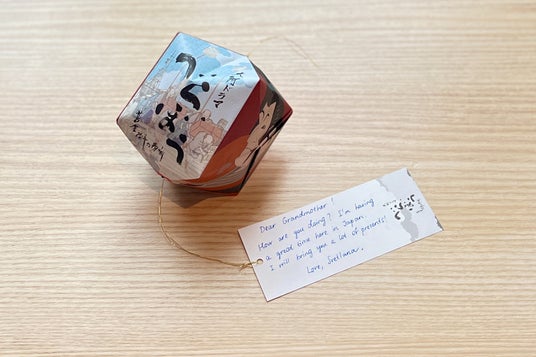 大河ドラマ
べらぼう
蔦重栄華乃夢噺
Dear Grandmother!
How are you doing? I'm having
a great time here in Japan.
I will bring you a lot of presents!
Love, Svetlana.
べらぼう